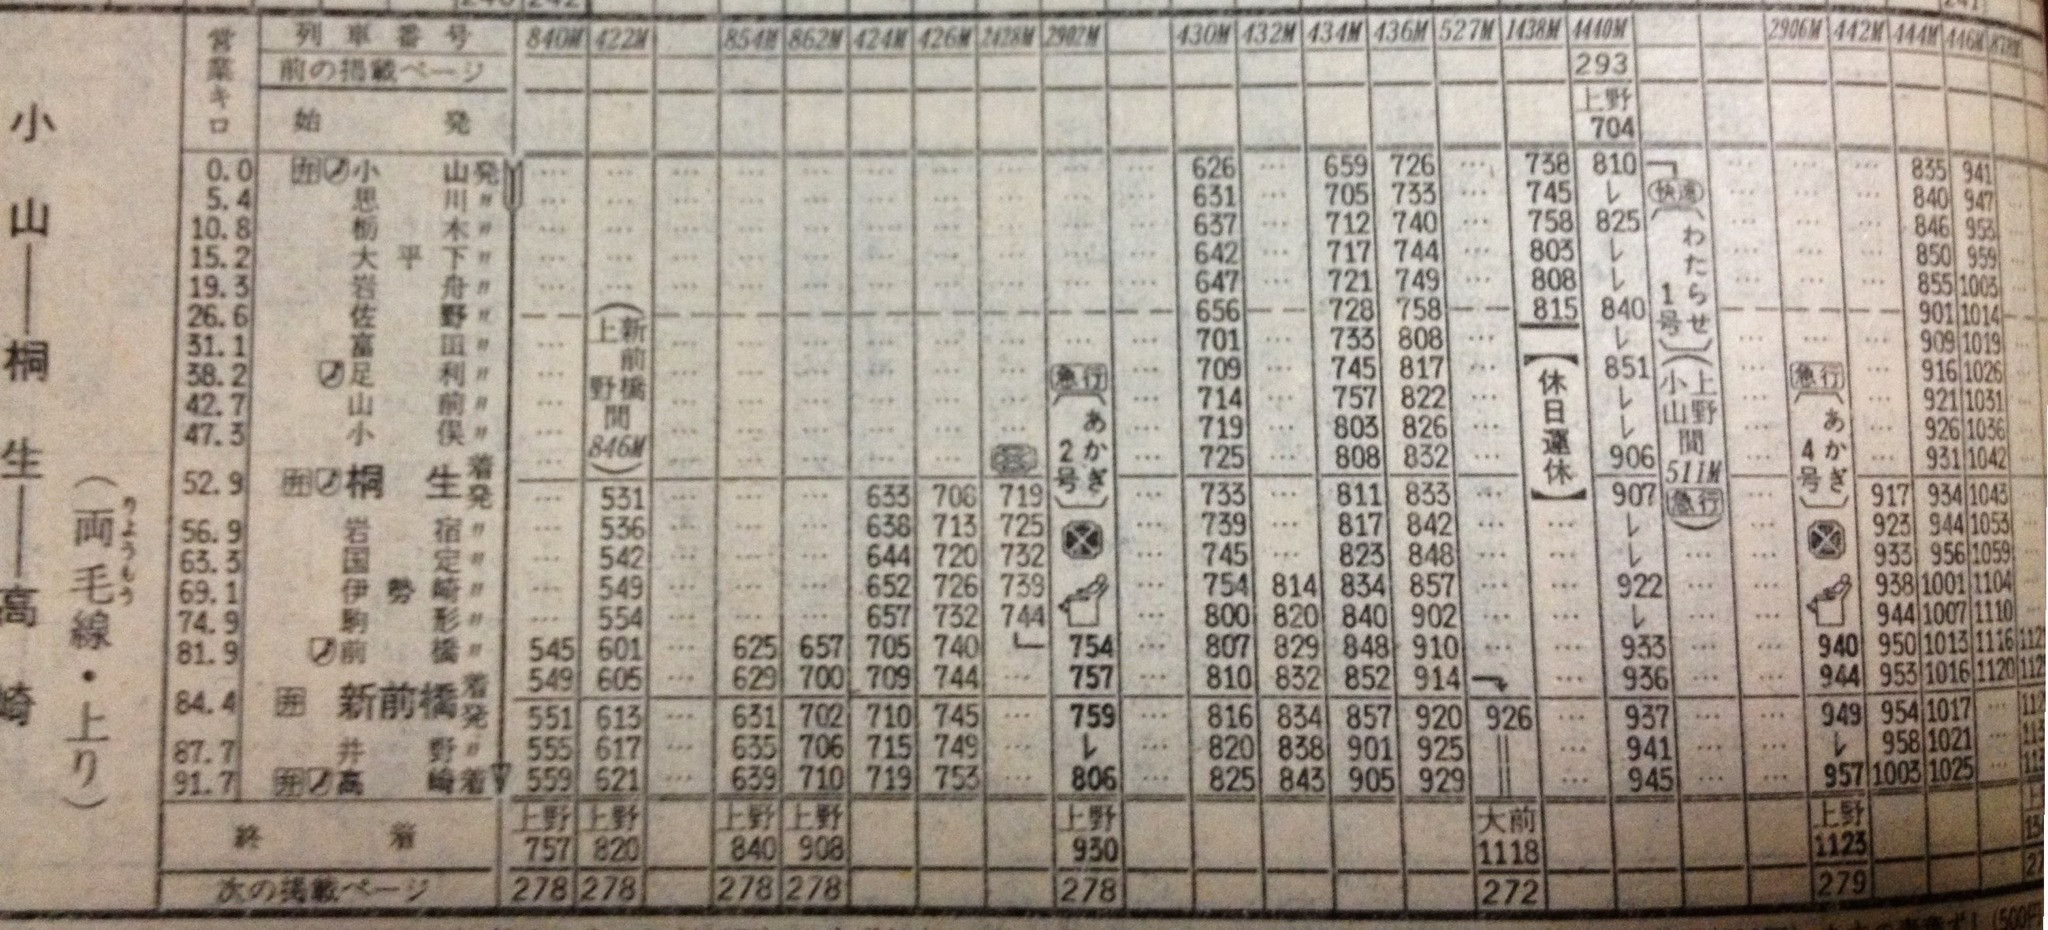 小山―桐生―高崎
(両毛線・上り)
りょうもう
営業キロ 列車番号 840M 422M 854M 862M 424M 426M 2428M 2902M 430M 432M 434M 436M 527M 1438M 4440M 2906M 442M 444M 446M
前の掲載ページ 293
始発 上野 704
0.0 弁 小山発 … … … … … … … … 626 … 659 726 … 738 810 … … … 835 941
5.4 思川〃 … … … … … … … … 631 … 705 733 … 745 レ … … … 840 947
10.8 栃木〃 … … … … … … … … 637 … 712 740 … 758 825 … … … 846 953
15.2 大平下〃 … … … … … … … … 642 … 717 744 … 803 レ … … … 850 959
19.3 岩舟〃 … … … … … … … … 647 … 721 749 … 808 レ … … … 855 1003
26.6 佐野〃 656 728 758 815 840 901 1014
31.1 富田〃 701 … 733 808 … レ 909 1019
38.2 足利〃 709 … 745 817 … 851 916 1026
42.7 山前〃 714 … 757 822 … レ 921 1031
47.3 小俣〃 719 … 803 826 … レ 926 1036
52.9 弁 桐生着 725 … 808 832 … 906 931 1042
発 … 531 … … … 633 706 719 733 … 811 833 … 907 917 934 1043
56.9 岩宿〃 … 536 … … … 638 713 725 739 … 817 842 … … レ 923 944 1053
63.3 国定〃 … 542 … … … 644 720 732 745 … 823 848 … … レ 933 956 1059
69.1 伊勢崎〃 … 549 … … … 652 726 739 754 814 834 857 … … 922 938 1001 1104
74.9 駒形〃 … 554 … … … 657 732 744 800 820 840 902 … … レ 944 1007 1110
81.9 前橋〃 545 601 … 625 657 705 740 754 … 807 829 848 910 … … 933 … … 940 950 1013 1116
84.4 弁 新前橋着 549 605 … 629 700 709 744 … 757 … 810 832 852 914 … 936 … … 944 953 1016 1120
発 551 613 … 631 702 710 745 … 759 … 816 834 857 920 926 … 937 … … 949 954 1017 …
87.7 井野〃 555 617 … 635 706 715 749 … レ … 820 838 901 925 || … 941 … … レ 958 1021 …
91.7 弁 高崎着 559 621 … 639 710 719 753 … 806 … 825 843 905 929 || … 945 … … 957 1003 1025 …
終着 上野 757 上野 820 上野 840 上野 908 上野 930 大前 1118 上野 1123
次の掲載ページ 278 278 278 278 278 272 279
(新前橋 上野間 846M)
急行
(あかぎ2号)
【休日運休】
快速
(わたらせ1号)
(上野 小山間 511M 急行)
急行
(あかぎ4号)